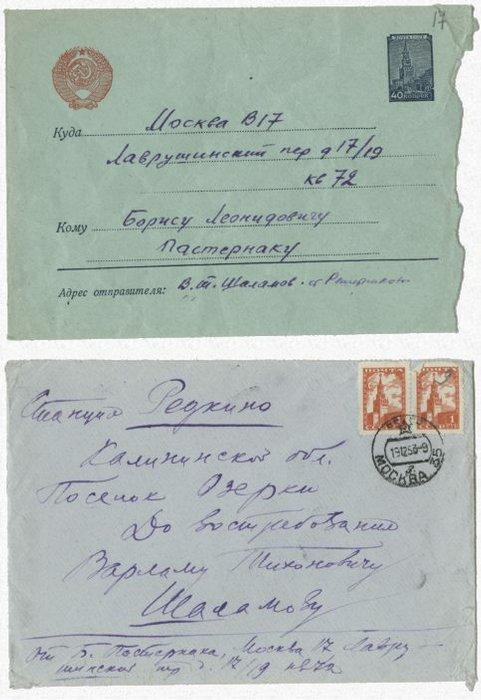 17
ПОЧТА СССР
40 КОПЕЕК
Куда Москва В17
Лаврушинский пер д 17/19
кв 72
Кому Борису Леонидовичу
Пастернаку
Адрес отправителя: В.Т. Шаламов.
ПОЧТА
Станция Редкино
1 1
19 12 53-9
МОСКВА
Калининской обл.
Поселок Озерки
До востребования
Варламу Тихоновичу
Шаламову
От Б. Пастернака, Москва 17 Лавру-
шинский пер д. 17/19 кв 72